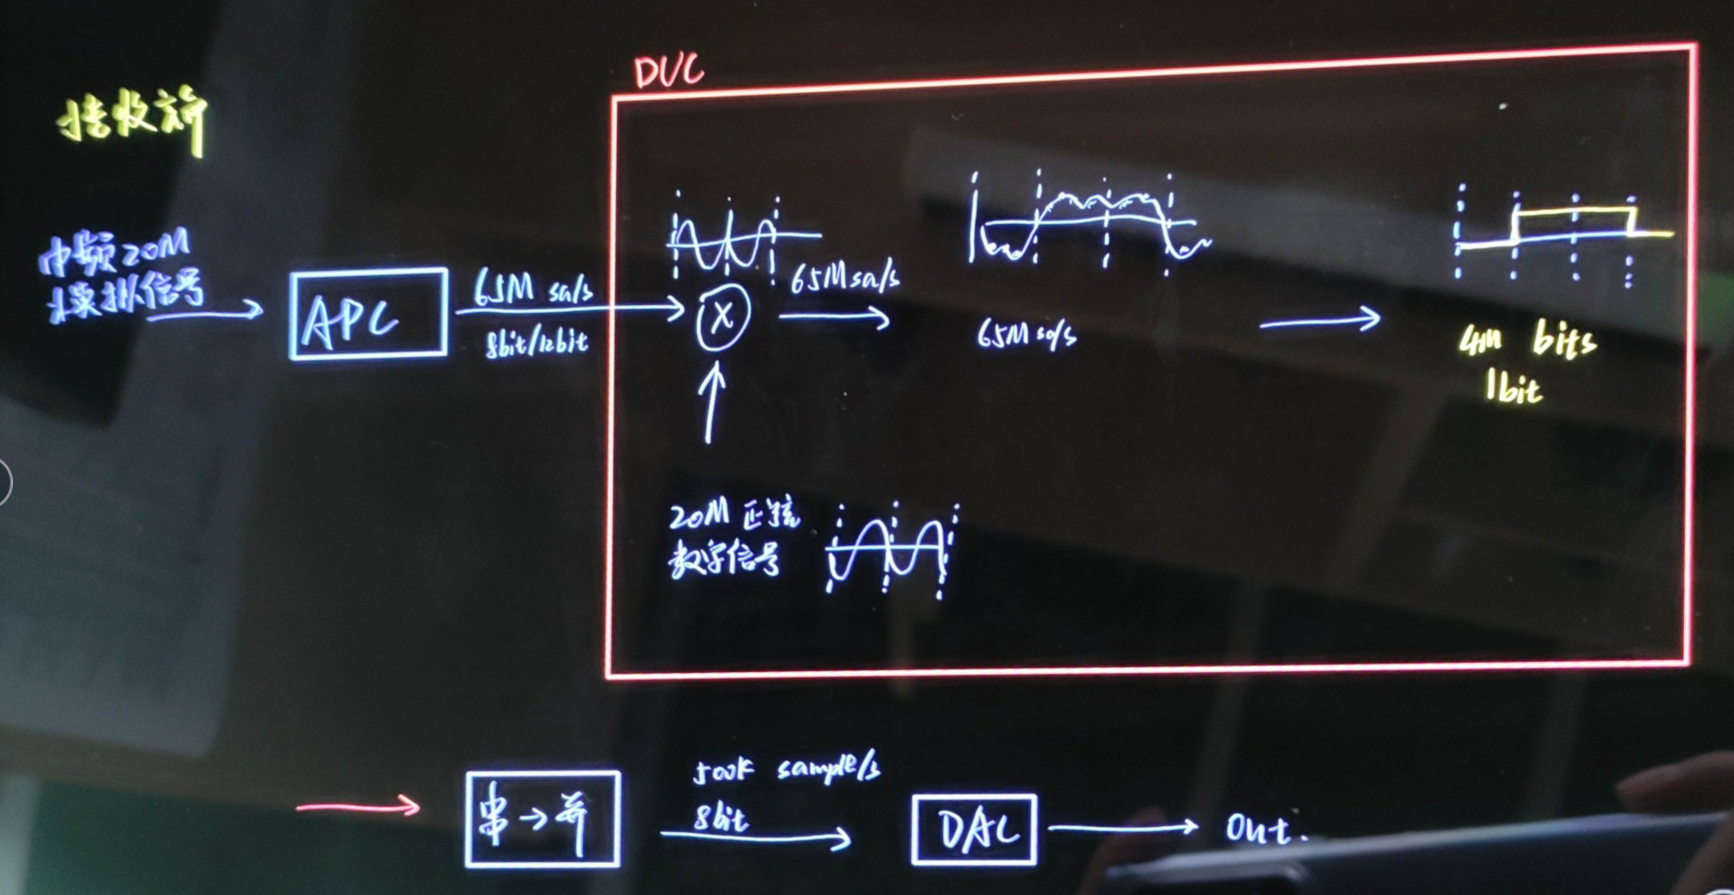 接收端
DUC
中频20M
模拟信号
APC
65M sa/s
8bit/12bit
X
65Msa/s
65M sa/s
4M bits
1bit
20M 正弦
数字信号
串→并
500K sample/s
8bit
DAC
Out.